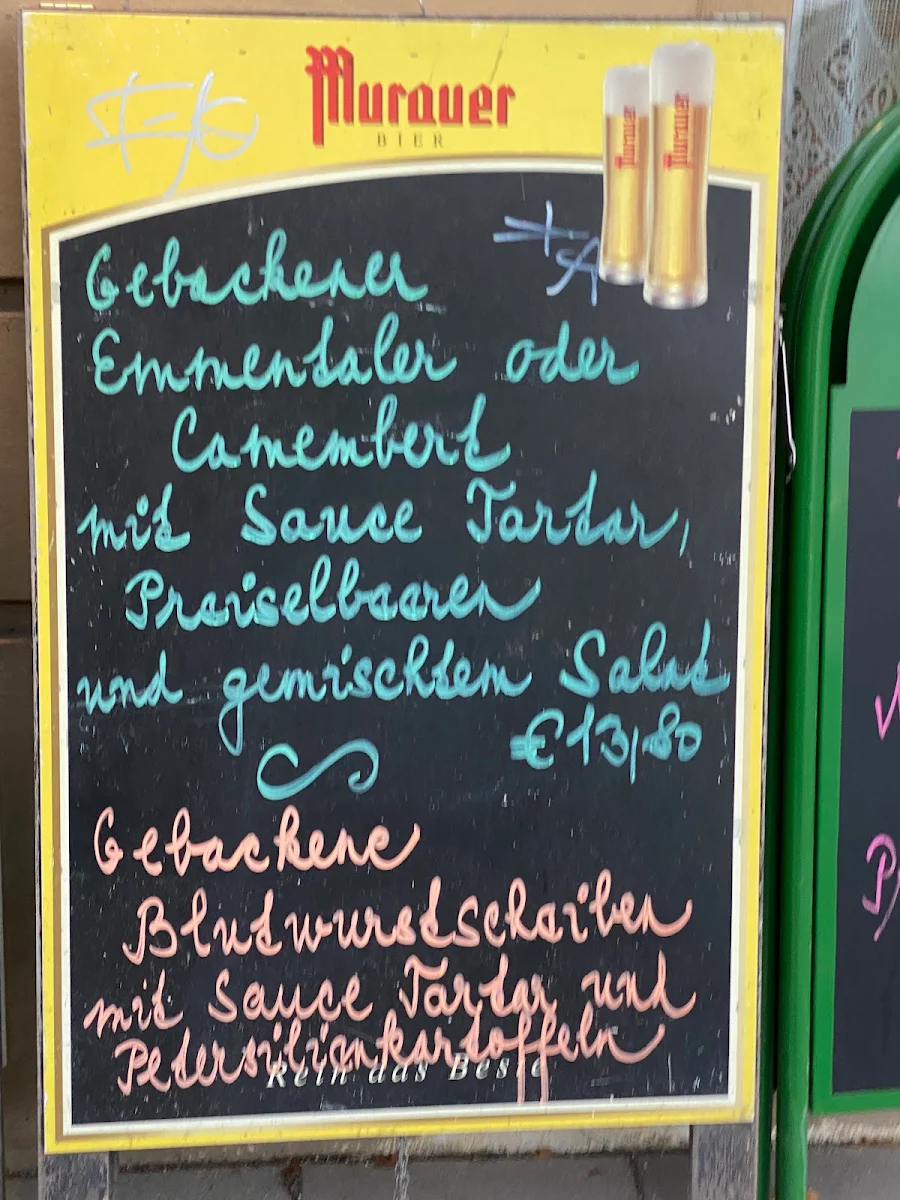 Murauer
BIER
Murauer
Murauer
Gebackener
Emmentaler oder
Camembert
mit Sauce Tartar,
Praiselbaaren
und gemischtem Salat
€ 13,80
Gebackene
Blutwurstschaiben
mit Sauce Tartar und
Petersiliankartoffeln
Rein das Beste